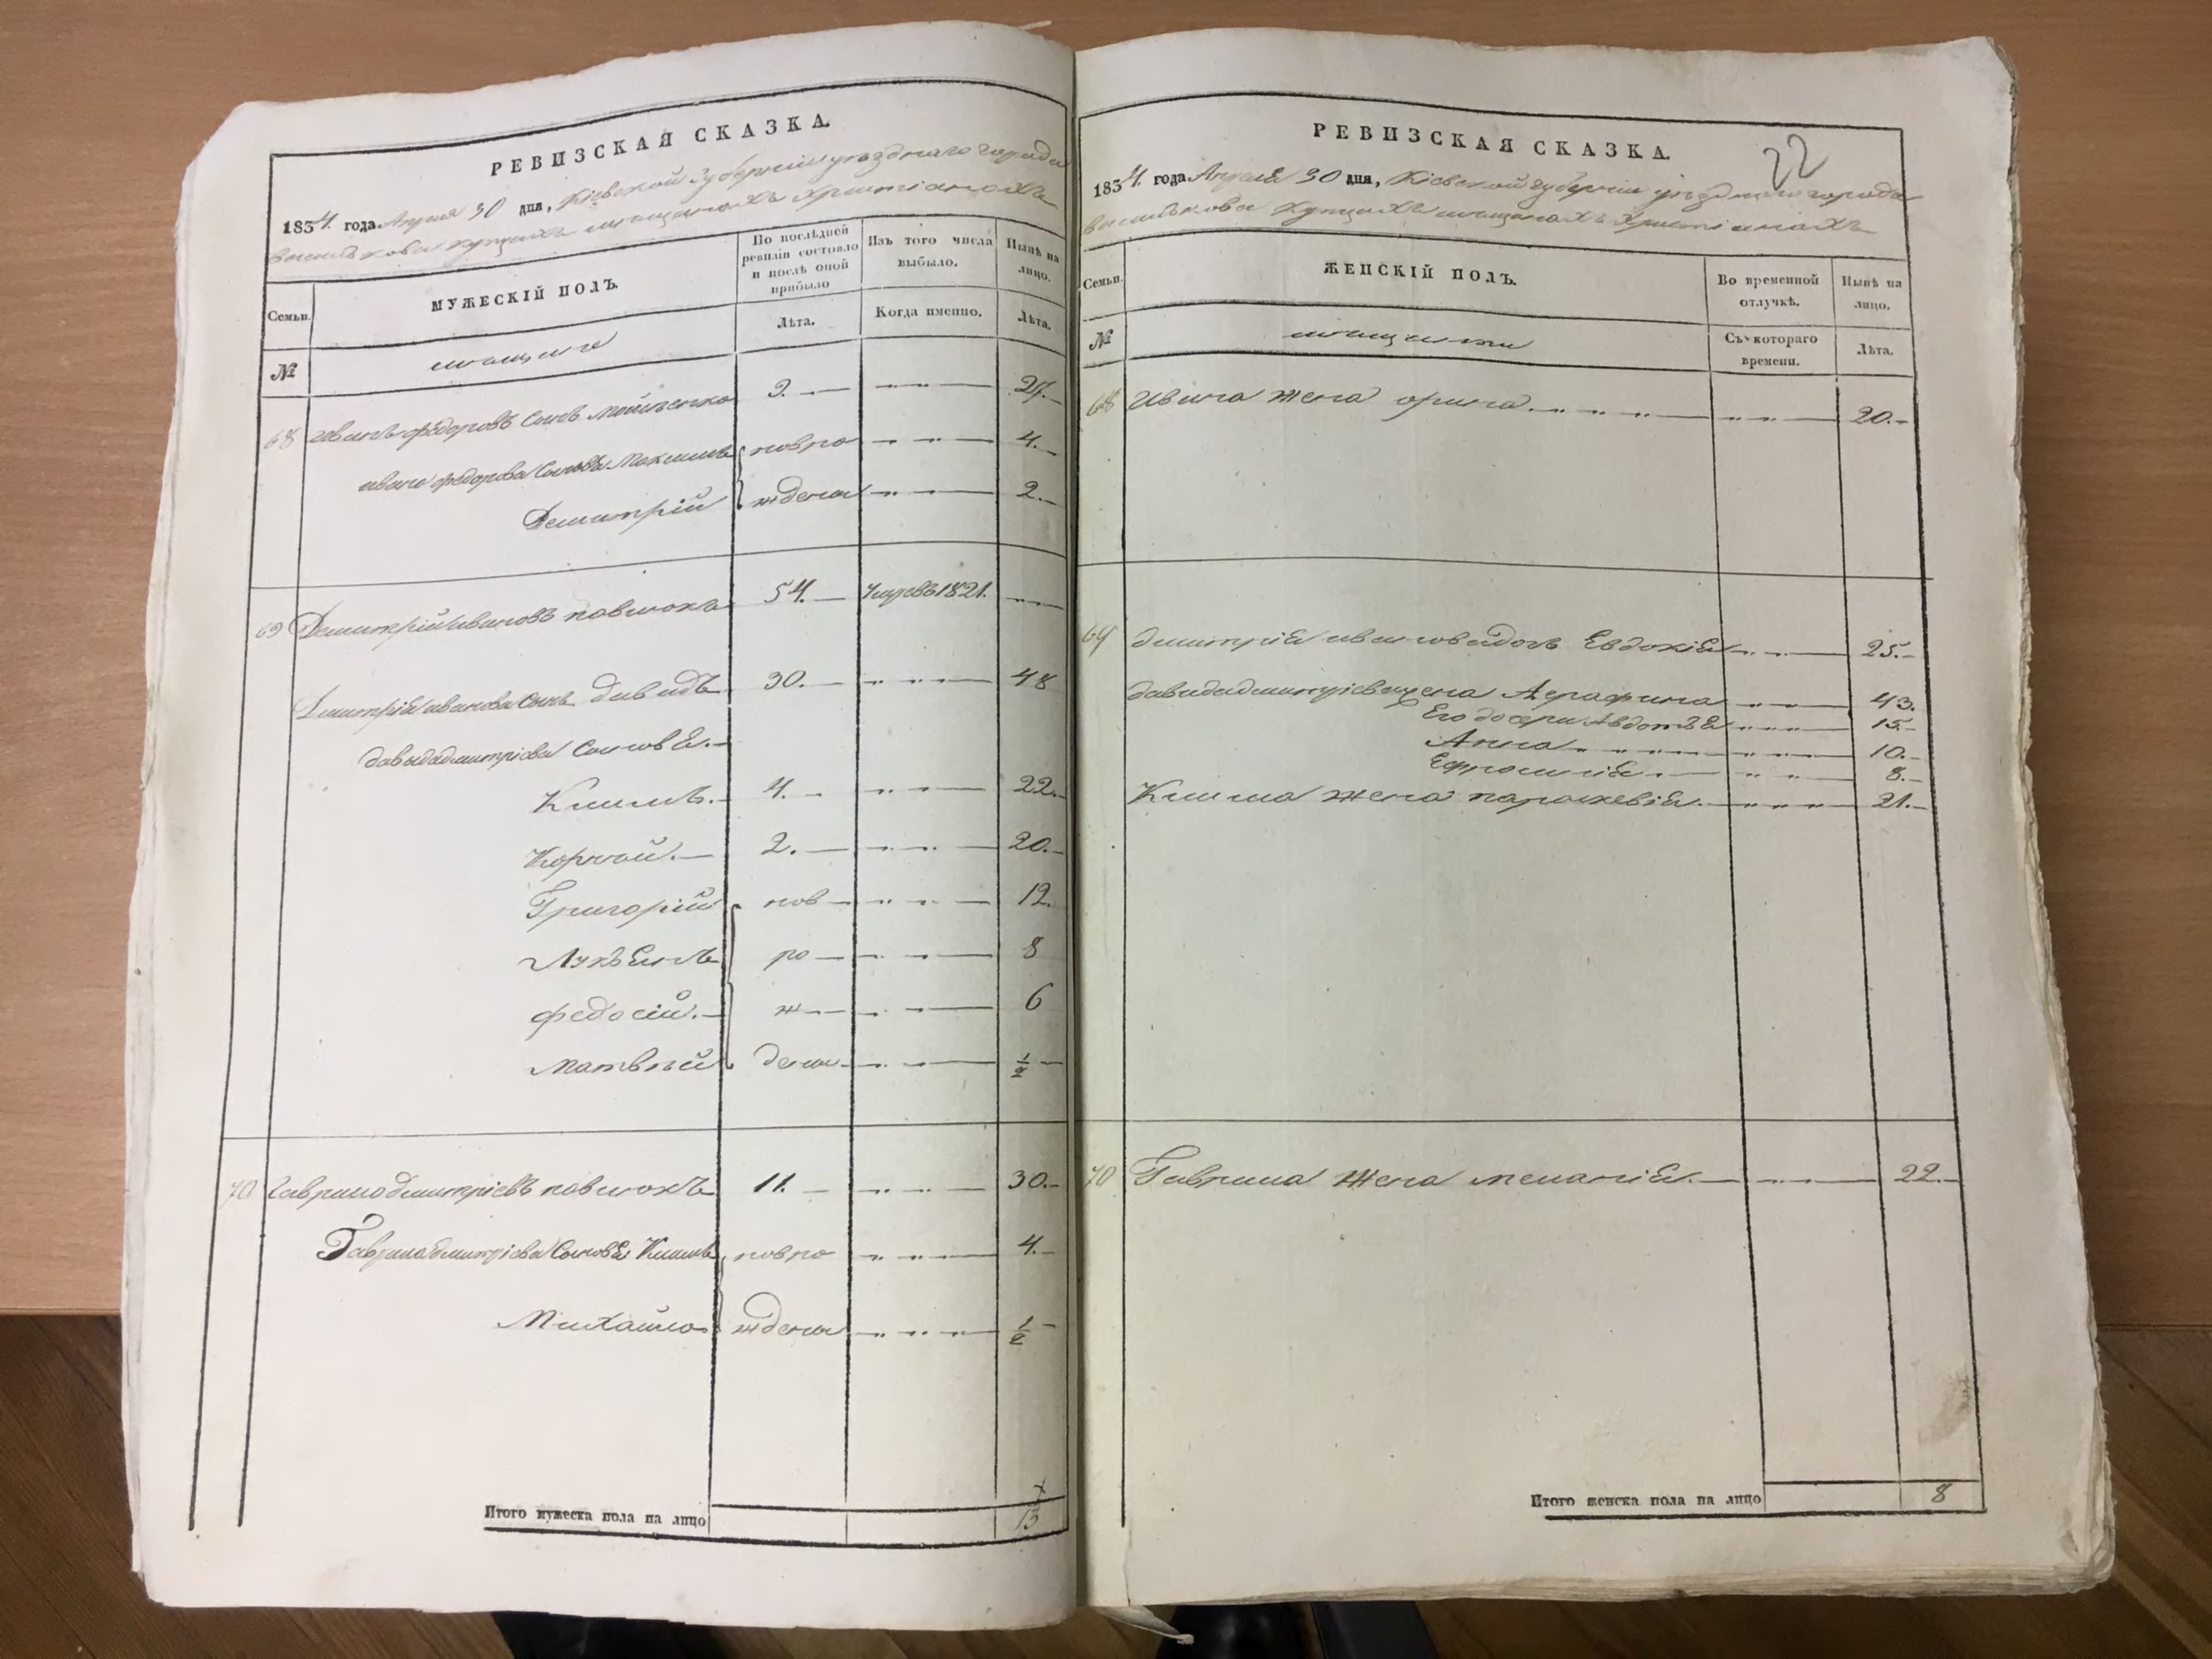 РЕВИЗСКАЯ СКАЗКА.
1834. года Апреля 30 дня, Кіевской Губерніи уѣзднаго города
Василькова купцахъ мещанахъ Христіанахъ
Семьи.
МУЖЕСКІЙ ПОЛЪ.
По послѣдней ревизіи состояло и послѣ оной прибыло
Изъ того числа выбыло.
Нынѣ на лицо.
Лѣта.
Когда именно.
Лѣта.
№
мещане
68 Иванъ Федоровъ Сынъ 9. 27.
Ивана Федорова Сыновья Максимъ новро 4.
Дмитрій ждены 2.
69 Дмитрій Ивановъ Павлюкъ 54. Умре въ 1821.
Дмитрія Иванова Сынъ Давидъ 30. 48
Давыда Дмитріева Сыновья.
Климъ. 4. 22.
Корней. 2. 20.
Григорій нов 12.
Лукьянъ ро 8
Федосій. ж 6
Матвѣй дены 1/2
70 Гаврило Дмитріевъ Павлюкъ 11. 30.
Гаврила Дмитріева Сыновья Климъ новро 4.
Михайло ждены 1/2
Итого мужеска пола на лицо 13
РЕВИЗСКАЯ СКАЗКА.
22
1834. года Апреля 30 дня, Кіевской Губерніи уѣзднаго города
Василькова Купцахъ мещанахъ Христіанахъ
Семьи.
ЖЕНСКІЙ ПОЛЪ.
Во временной отлучкѣ.
Нынѣ на лицо.
№
мещанки
Съ котораго времени.
Лѣта.
68 Ивана жена Орина 20.
69 Дмитрія Иванова дочь Евдокія 25.
Давида Дмитріева жена Аграфина 43.
Его дочери Авдотья 15.
Анна 10.
Ефросинія 8.
Клима жена Параскевія 21.
70 Гаврила жена Меланія. 22.
Итого женска пола на лицо 8